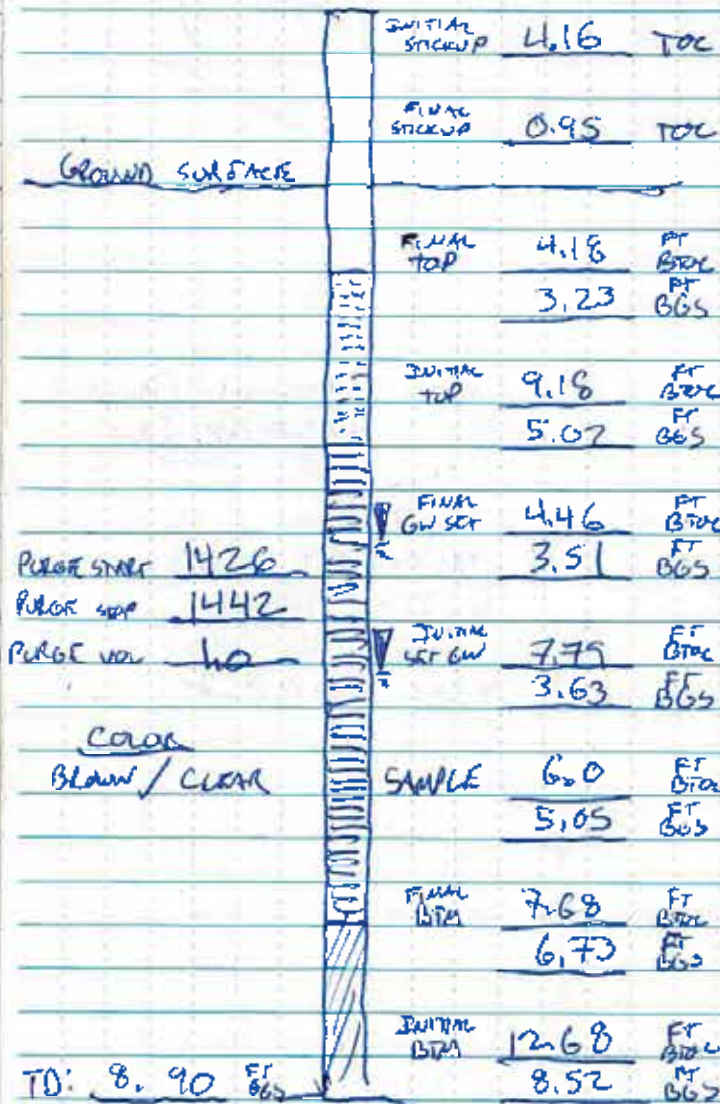 INITIAL STICKUP 4.16 TOC
FINAL STICKUP 0.95 TOC
GROUND SURFACE
FINAL TOP 4.18 FT BTOC
3.23 FT BGS
INITIAL TOP 9.18 FT BTOC
5.02 FT BGS
FINAL GW SET 4.46 FT BTOC
3.51 FT BGS
PURGE START 1426
PURGE STOP 1442
PURGE VOL
INITIAL SET GW 7.79 FT BTOC
3.63 FT BGS
COLOR
BROWN / CLEAR
SAMPLE 6.0 FT BTOC
5.05 FT BGS
FINAL BTM 7.68 FT BTOC
6.73 FT BGS
INITIAL BTM 12.68 FT BTOC
8.52 FT BGS
TD: 8.90 FT BGS